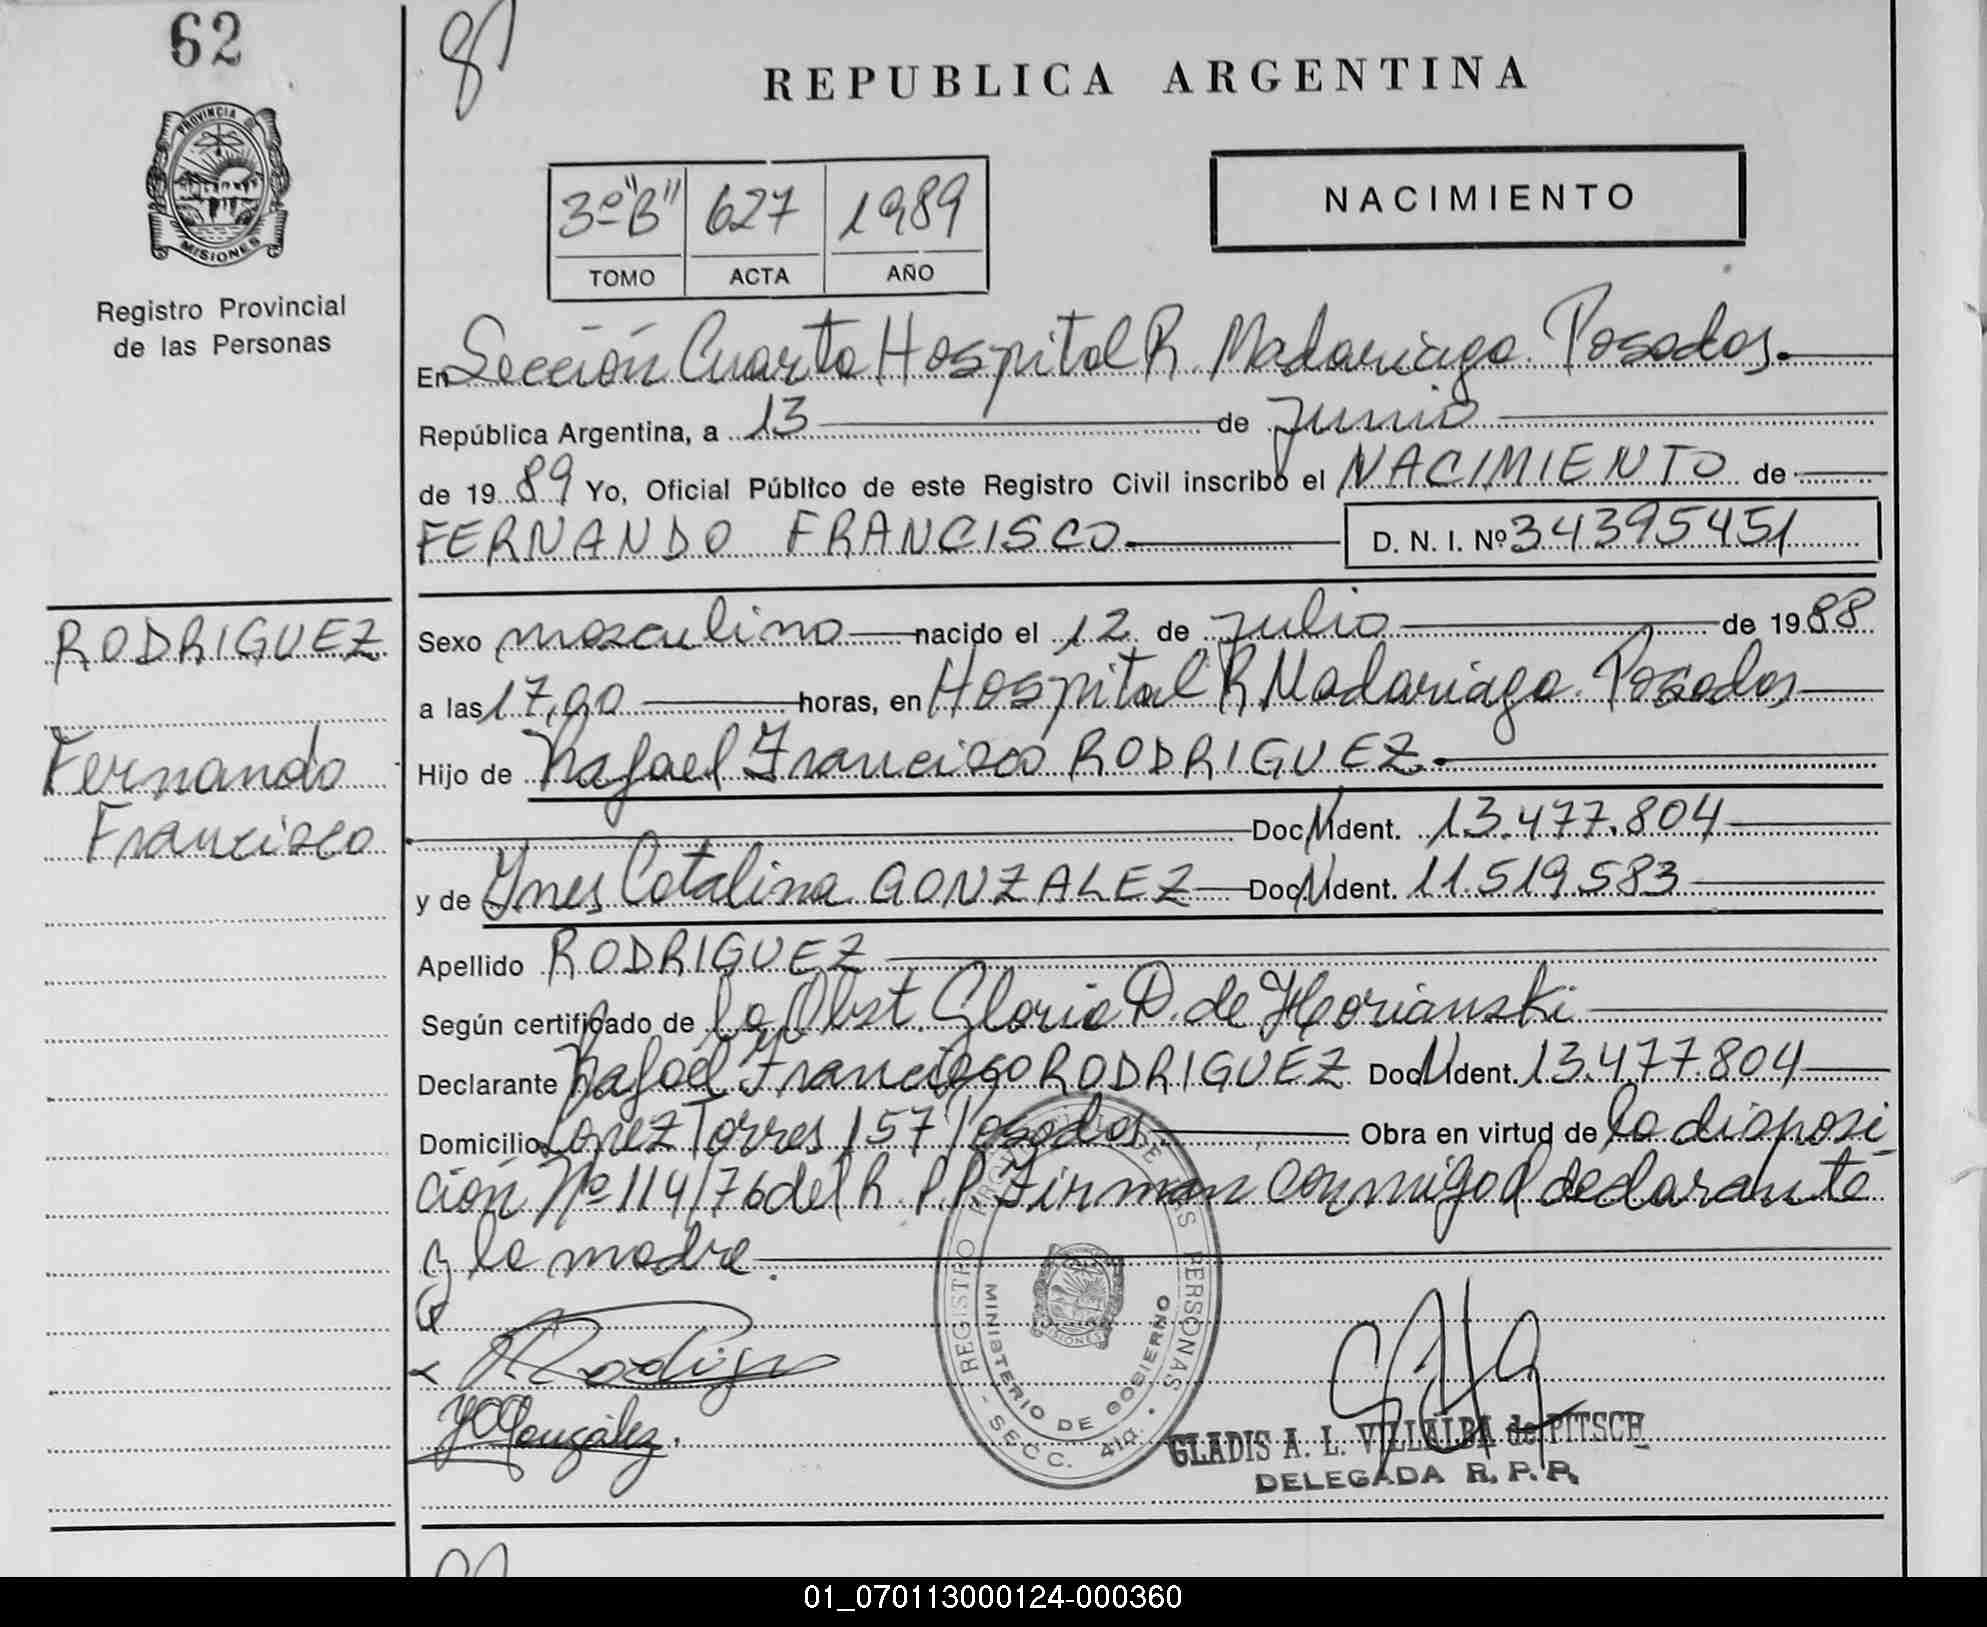 62
87
REPUBLICA ARGENTINA
PROVINCIA DE
MISIONES
Registro Provincial
de las Personas
3º "B" 627 1989
TOMO ACTA AÑO
NACIMIENTO
En Sección Cuarta Hospital R. Madariaga. Posadas.
República Argentina, a 13 de Junio
de 1989 Yo, Oficial Público de este Registro Civil inscribo el NACIMIENTO de
FERNANDO FRANCISCO D. N. I. Nº 34395451
RODRIGUEZ
Fernando
Francisco
Sexo masculino nacido el 12 de Julio de 1988
a las 17,00 horas, en Hospital R Madariaga. Posadas
Hijo de Rafael Francisco RODRIGUEZ.
Doc N Ident. 13.477.804
y de Ynes Catalina GONZALEZ Doc. N Ident. 11.519.583
Apellido RODRIGUEZ
Según certificado de la Obst. Gloria D. de
Declarante Rafael Francisco RODRIGUEZ Doc N Ident. 13.477.804
Domicilio Lopez Torres 157 Posadas. Obra en virtud de la disposi
ción Nº 114/76 del R. P. P. Firman conmigo el declarante
y la madre.
REGISTRO PROVINCIAL DE LAS PERSONAS
MINISTERIO DE GOBIERNO
MISIONES
- SECC. 4ta. -
YCGonzález.
GLADIS A. L. VILLALBA de PITSCH
DELEGADA R. P. P.
01_070113000124-000360